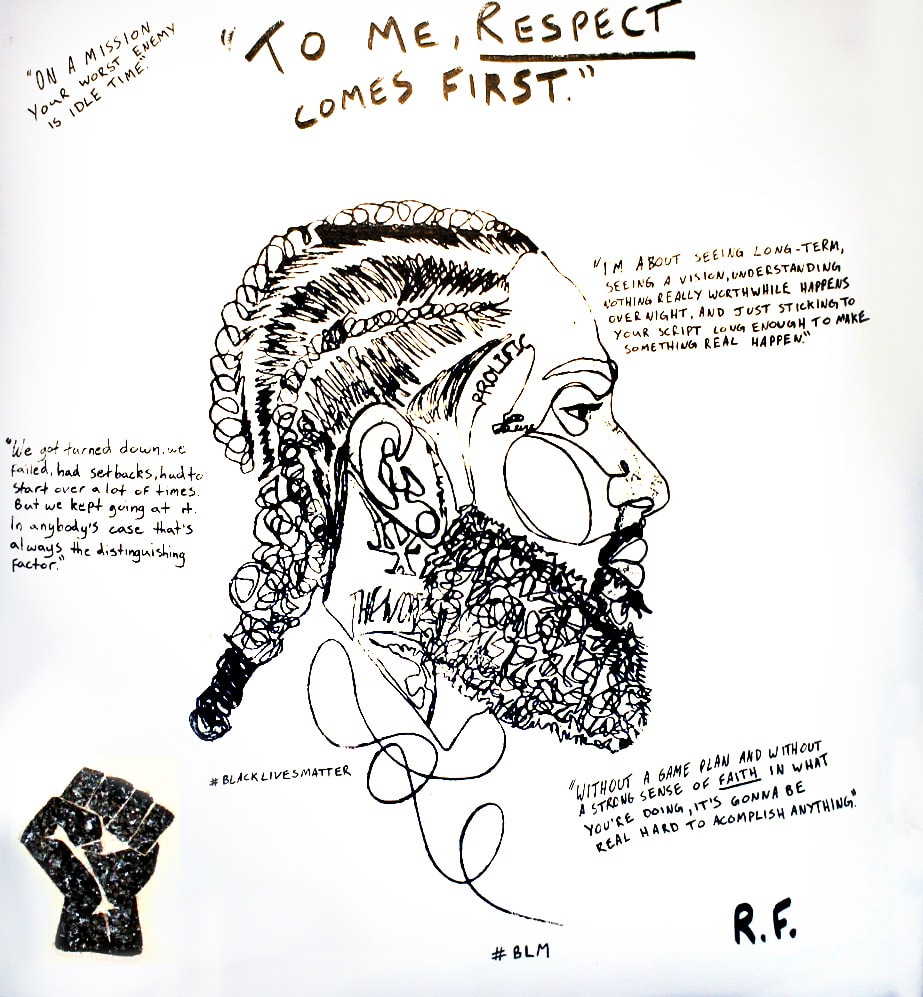 "ON A MISSION
YOUR WORST ENEMY
IS IDLE TIME."
"TO ME, RESPECT
COMES FIRST."
"I'M ABOUT SEEING LONG-TERM,
SEEING A VISION, UNDERSTANDING
NOTHING REALLY WORTHWHILE HAPPENS
OVERNIGHT, AND JUST STICKING TO
YOUR SCRIPT LONG ENOUGH TO MAKE
SOMETHING REAL HAPPEN."
PROLIFIC
"We got turned down, we
failed, had setbacks, had to
start over a lot of times.
But we kept going at it.
In anybody's case that's
always the distinguishing
factor."
THE WOR
#BLACKLIVESMATTER
"WITHOUT A GAME PLAN AND WITHOUT
A STRONG SENSE OF FAITH IN WHAT
YOU'RE DOING, IT'S GONNA BE
REAL HARD TO ACOMPLISH ANYTHING."
R.F.
#BLM